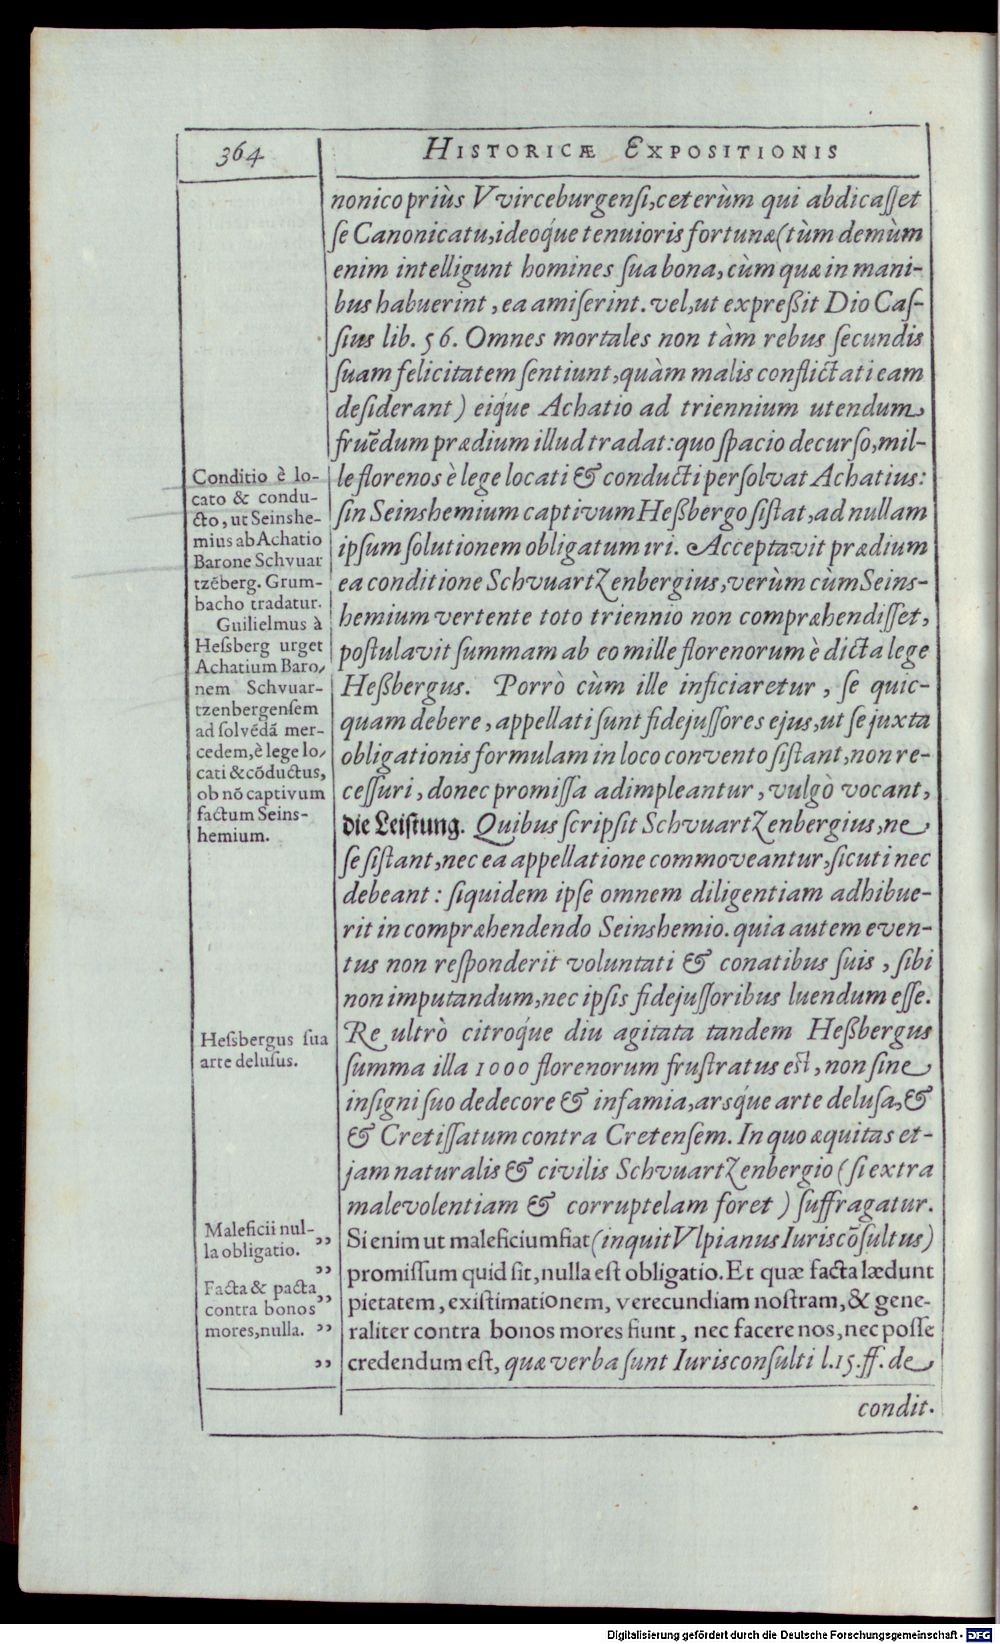 364
HISTORICÆ EXPOSITIONIS
nonico priùs Vvirceburgensi, ceterùm qui abdicasset
se Canonicatu, ideoq́ue tenuioris fortunæ (tùm demùm
enim intelligunt homines sua bona, cùm quæ in mani-
bus habuerint, ea amiserint. vel, ut expreßit Dio Cas-
sius lib. 56. Omnes mortales non tàm rebus secundis
suam felicitatem sentiunt, quàm malis conflictati eam
desiderant) eiq́ue Achatio ad triennium utendum,
fruẽdum prædium illud tradat: quo spacio decurso, mil-
le florenos è lege locati & conducti persolvat Achatius:
sin Seinshemium captivum Heßbergo sistat, ad nullam
ipsum solutionem obligatum iri. Acceptavit prædium
ea conditione Schvuartzenbergius, verùm cùm Seins-
hemium vertente toto triennio non compræhendisset,
postulavit summam ab eo mille florenorum è dicta lege
Heßbergus. Porrò cùm ille inficiaretur, se quic-
quam debere, appellati sunt fidejussores ejus, ut se juxta
obligationis formulam in loco convento sistant, non re-
cessuri, donec promissa adimpleantur, vulgò vocant,
die Leistung. Quibus scripsit Schvuartzenbergius, ne
se sistant, nec ea appellatione commoveantur, sicuti nec
debeant: siquidem ipse omnem diligentiam adhibue-
rit in compræhendendo Seinshemio. quia autem even-
tus non responderit voluntati & conatibus suis, sibi
non imputandum, nec ipsis fidejussoribus luendum esse.
Re ultrò citroq́ue diu agitata tandem Heßbergus
summa illa 1000 florenorum frustratus est, non sine
insigni suo dedecore & infamia, arsq́ue arte delusa, &
& Cretissatum contra Cretensem. In quo æquitas et-
jam naturalis & civilis Schvuartzenbergio (si extra
malevolentiam & corruptelam foret) suffragatur.
Si enim ut maleficium fiat (inquit Vlpianus Iuriscõsultus)
promissum quid sit, nulla est obligatio. Et quæ facta lædunt
pietatem, existimationem, verecundiam nostram, & gene-
raliter contra bonos mores fiunt, nec facere nos, nec posse
credendum est, quæ verba sunt Iurisconsulti l. 15. ff. de
condit.
Conditio è lo-
cato & condu-
cto, ut Seinshe-
mius ab Achatio
Barone Schvuar
tzẽberg. Grum-
bacho tradatur.
Guilielmus à
Hessberg urget
Achatium Baro,
nem Schvuar-
tzenbergensem
ad solvẽdã mer-
cedem, è lege lo,
cati & cõductus,
ob nõ captivum
factum Seins-
hemium.
Hessbergus sua
arte delusus.
Maleficii nul- ”
la obligatio.
”
Facta & pacta ”
contra bonos
mores, nulla. ”
”
Digitalisierung gefördert durch die Deutsche Forschungsgemeinschaft - DFG